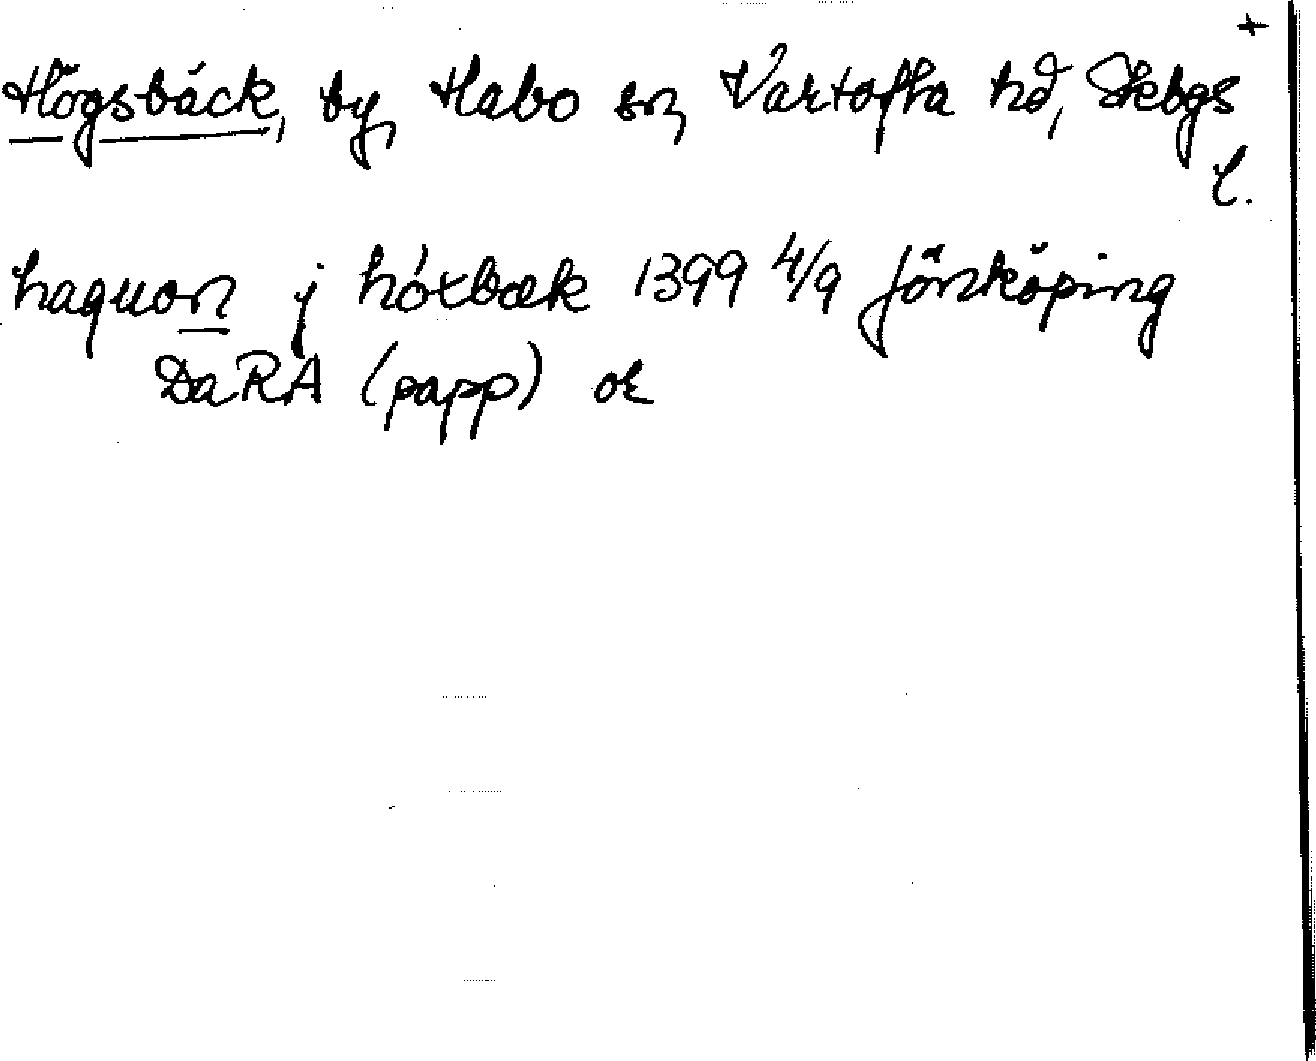 +
Högsbäck, by, Habo sn, Vartofta hd, Skbgs
l.
haquon j hóxbæk 1399 4/9 Jönköping
DaRA (papp) or